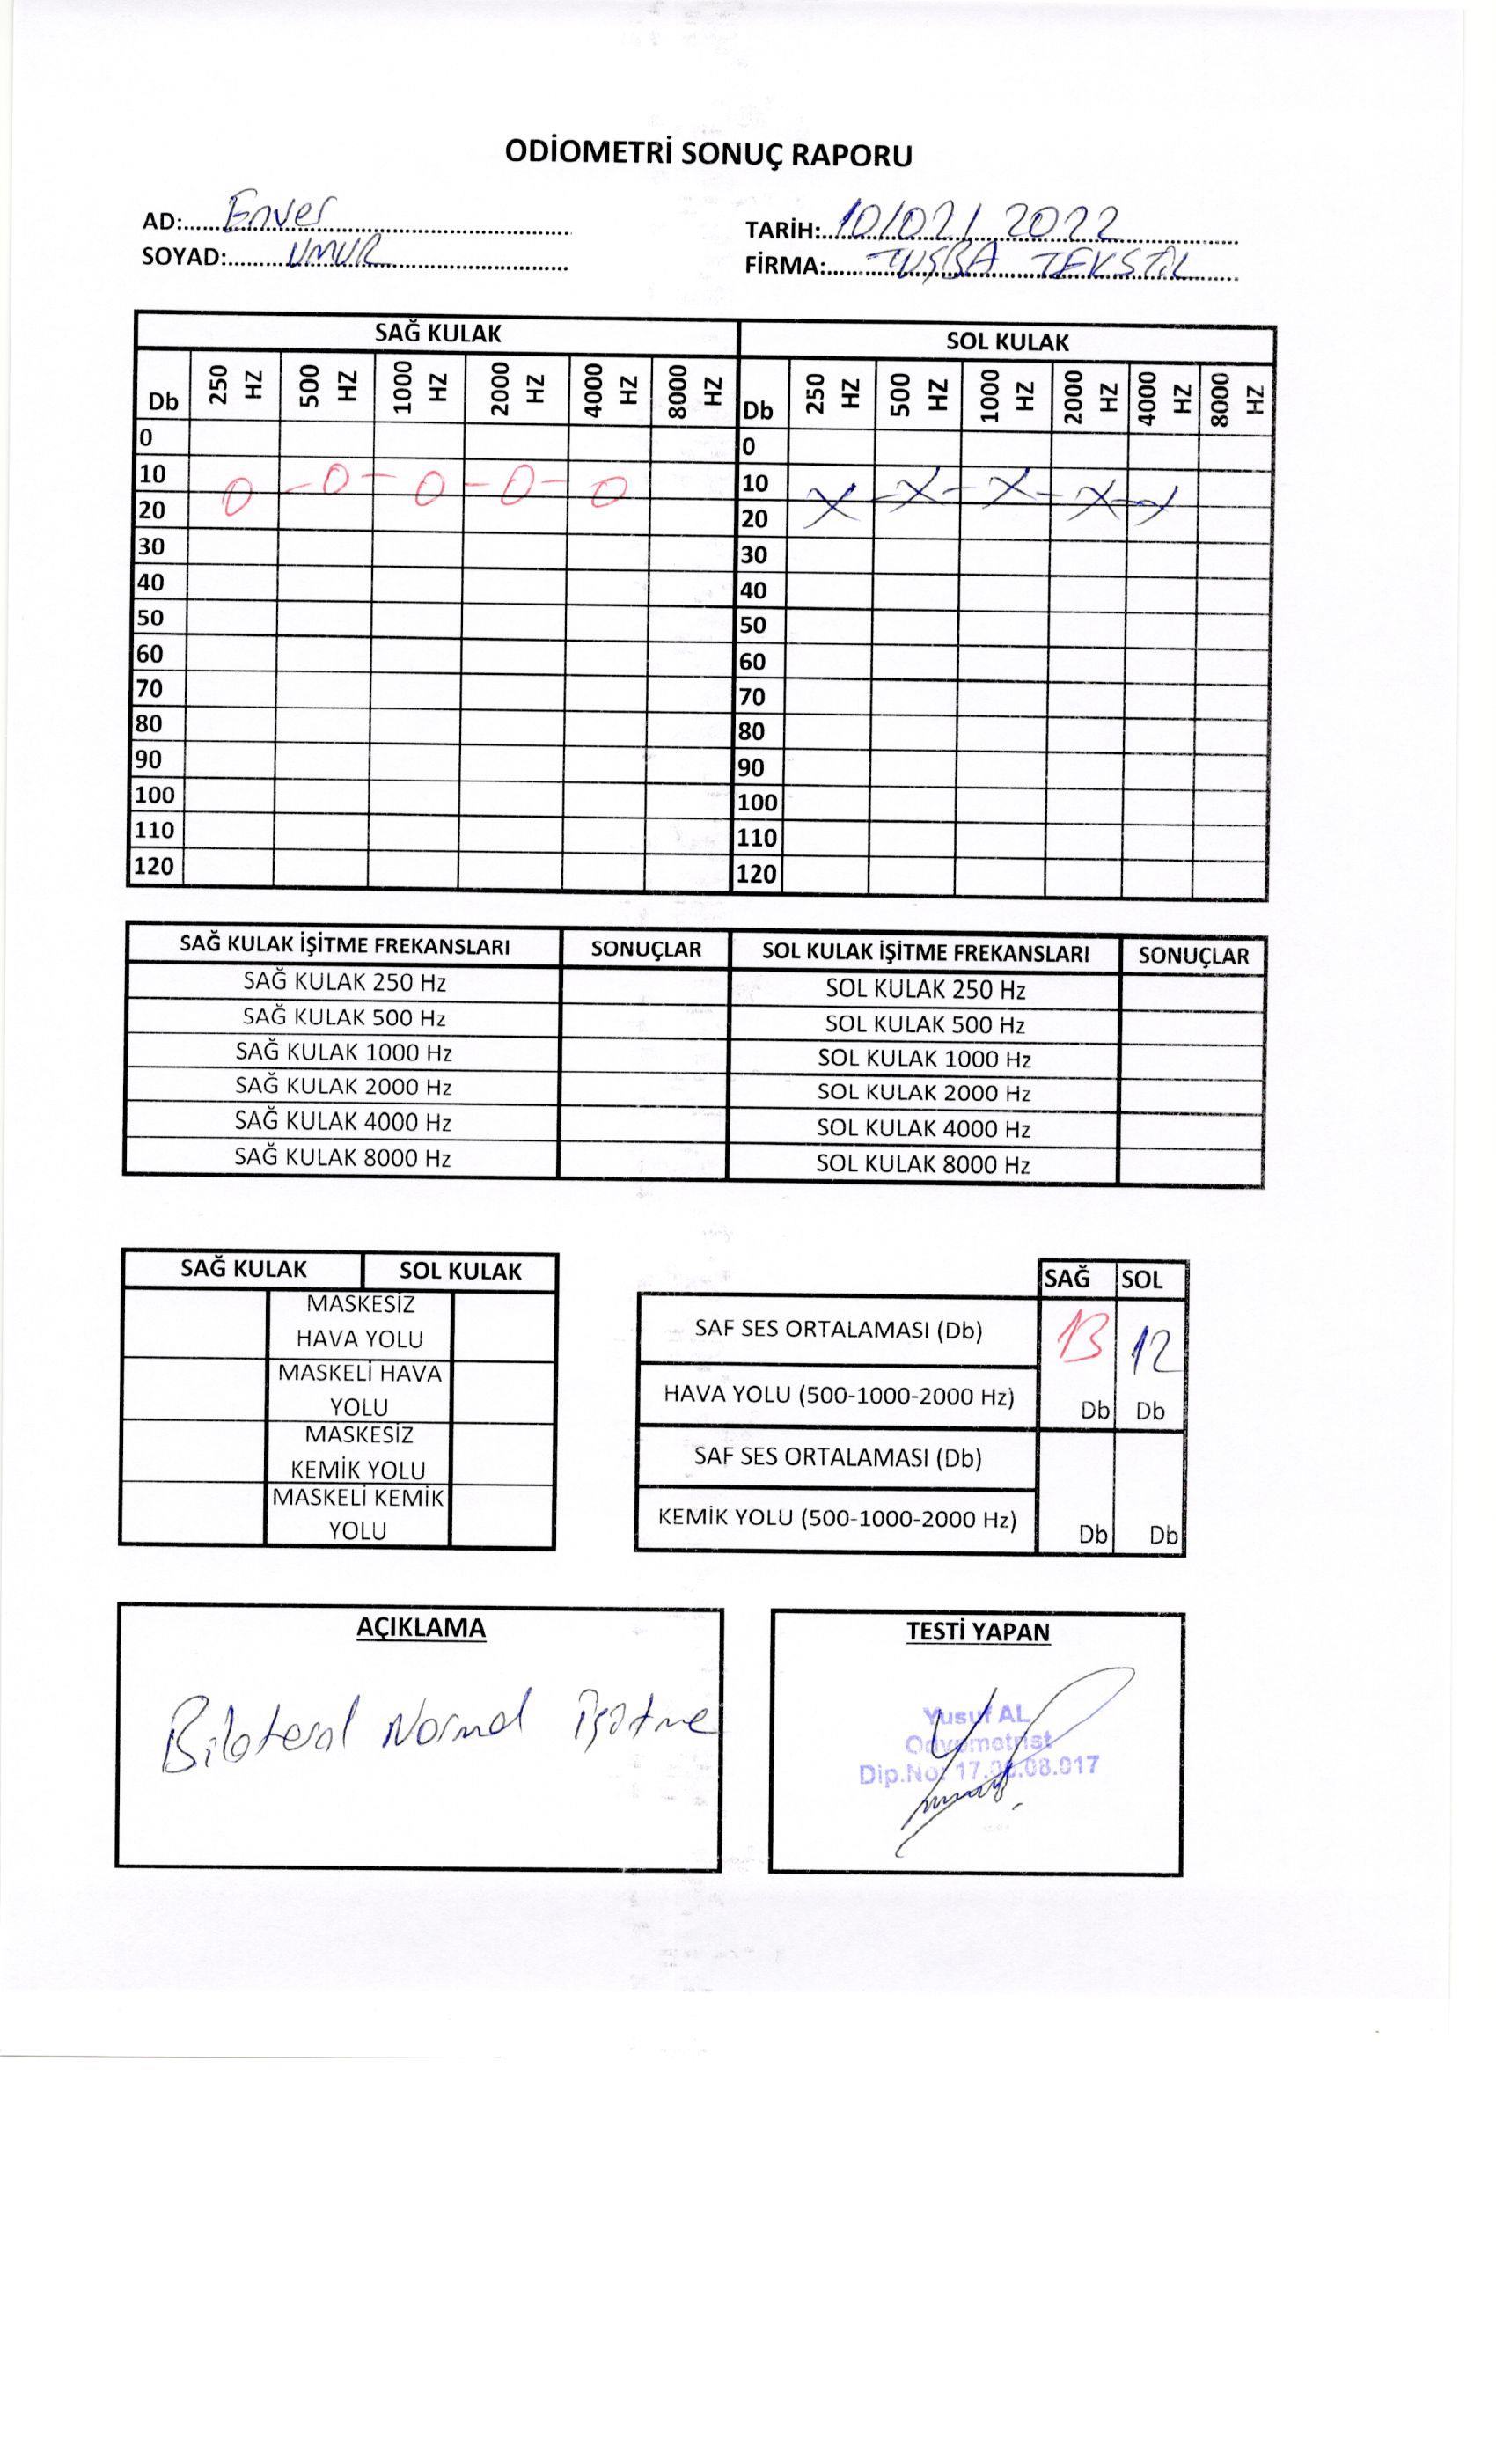 ODİOMETRİ SONUÇ RAPORU
AD:......Enver......
SOYAD:......UMUR......
TARİH:..10/02/2022......
FİRMA:......TUŞBA TEKSTİL......
SAĞ KULAK SOL KULAK
Db 250 HZ 500 HZ 1000 HZ 2000 HZ 4000 HZ 8000 HZ Db 250 HZ 500 HZ 1000 HZ 2000 HZ 4000 HZ 8000 HZ
0 0
10 10
20 20
30 30
40 40
50 50
60 60
70 70
80 80
90 90
100 100
110 110
120 120
SAĞ KULAK İŞİTME FREKANSLARI SONUÇLAR SOL KULAK İŞİTME FREKANSLARI SONUÇLAR
SAĞ KULAK 250 Hz SOL KULAK 250 Hz
SAĞ KULAK 500 Hz SOL KULAK 500 Hz
SAĞ KULAK 1000 Hz SOL KULAK 1000 Hz
SAĞ KULAK 2000 Hz SOL KULAK 2000 Hz
SAĞ KULAK 4000 Hz SOL KULAK 4000 Hz
SAĞ KULAK 8000 Hz SOL KULAK 8000 Hz
SAĞ KULAK SOL KULAK
MASKESİZ
HAVA YOLU
MASKELİ HAVA
YOLU
MASKESİZ
KEMİK YOLU
MASKELİ KEMİK
YOLU
SAĞ SOL
SAF SES ORTALAMASI (Db) 13 12
HAVA YOLU (500-1000-2000 Hz) Db Db
SAF SES ORTALAMASI (Db)
KEMİK YOLU (500-1000-2000 Hz) Db Db
AÇIKLAMA
Bilateral Normal işitme
TESTİ YAPAN
Yusuf AL
Odyometrist
Dip.No: